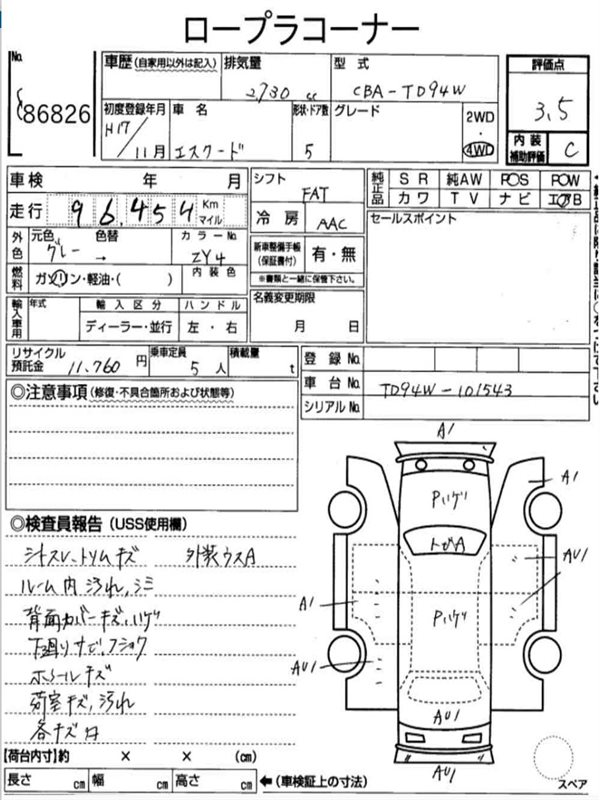 ロープラコーナー
No.
86826
車歴 (自家用以外は記入)
排気量
2730 cc
型式
CBA-TD94W
評価点
3.5
初度登録年月
H17/11月
車名
エスクード
形状・ドア数
5
グレード
2WD
・
4WD
内装
補助評価
C
車検 年 月
シフト
FAT
純正品
SR 純AW PS PW
カワ TV ナビ エアB
走行 96,454 Km
マイル
冷房
AAC
セールスポイント
外色
元色
グレー
色替
→
カラーNo.
ZY4
新車整備手帳
(保証書付)
有・無
※書類と一緒に保管下さい。
燃料
ガソリン・軽油・( )
内装色
輸入車用
年式
輸入区分
ディーラー・並行
ハンドル
左・右
名義変更期限
月 日
リサイクル
預託金
11,760 円
乗車定員
5 人
積載量
t
登録No.
車台No.
TD94W-101543
シリアルNo.
◎注意事項 (修復・不具合箇所および状態等)
◎検査員報告 (USS使用欄)
シートスレ、トリムキズ 外装ウスA
ルーム内 汚れ、シミ
背面カバーキズ、ハゲ
下廻りサビ、フショク
ホイールキズ
荷室キズ、汚れ
各キズ
A1
Pハゲ
A1
トビA
AU1
A1
Pハゲ
AU1
AU1
AU1
スペア
【荷台内寸】約 × × (cm)
長さ cm 幅 cm 高さ cm
←(車検証上の寸法)